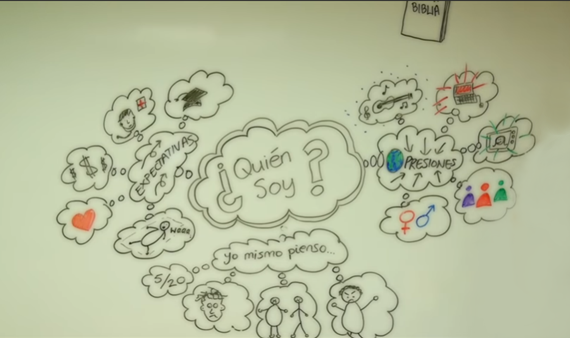 BIBLIA
¿Quién
Soy?
EXPECTATIVAS
$ $ $
PRESIONES
yo mismo pienso...
5/20